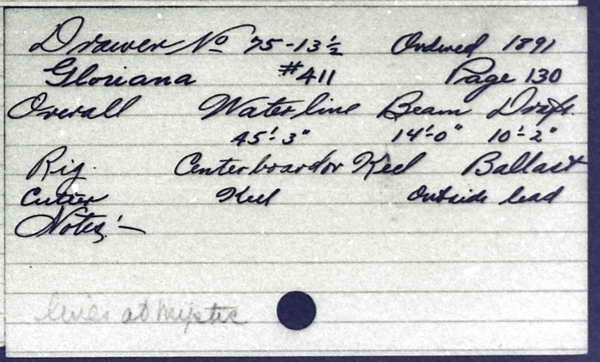 Drawer No 75-13½ Ordered 1891
Gloriana #411 Page 130
Overall Waterline Beam Draft
45'-3" 14'-0" 10'-2"
Rig. Centerboard or Keel Ballast
Cutter Keel Outside lead
Notes:—
lines at Mystic